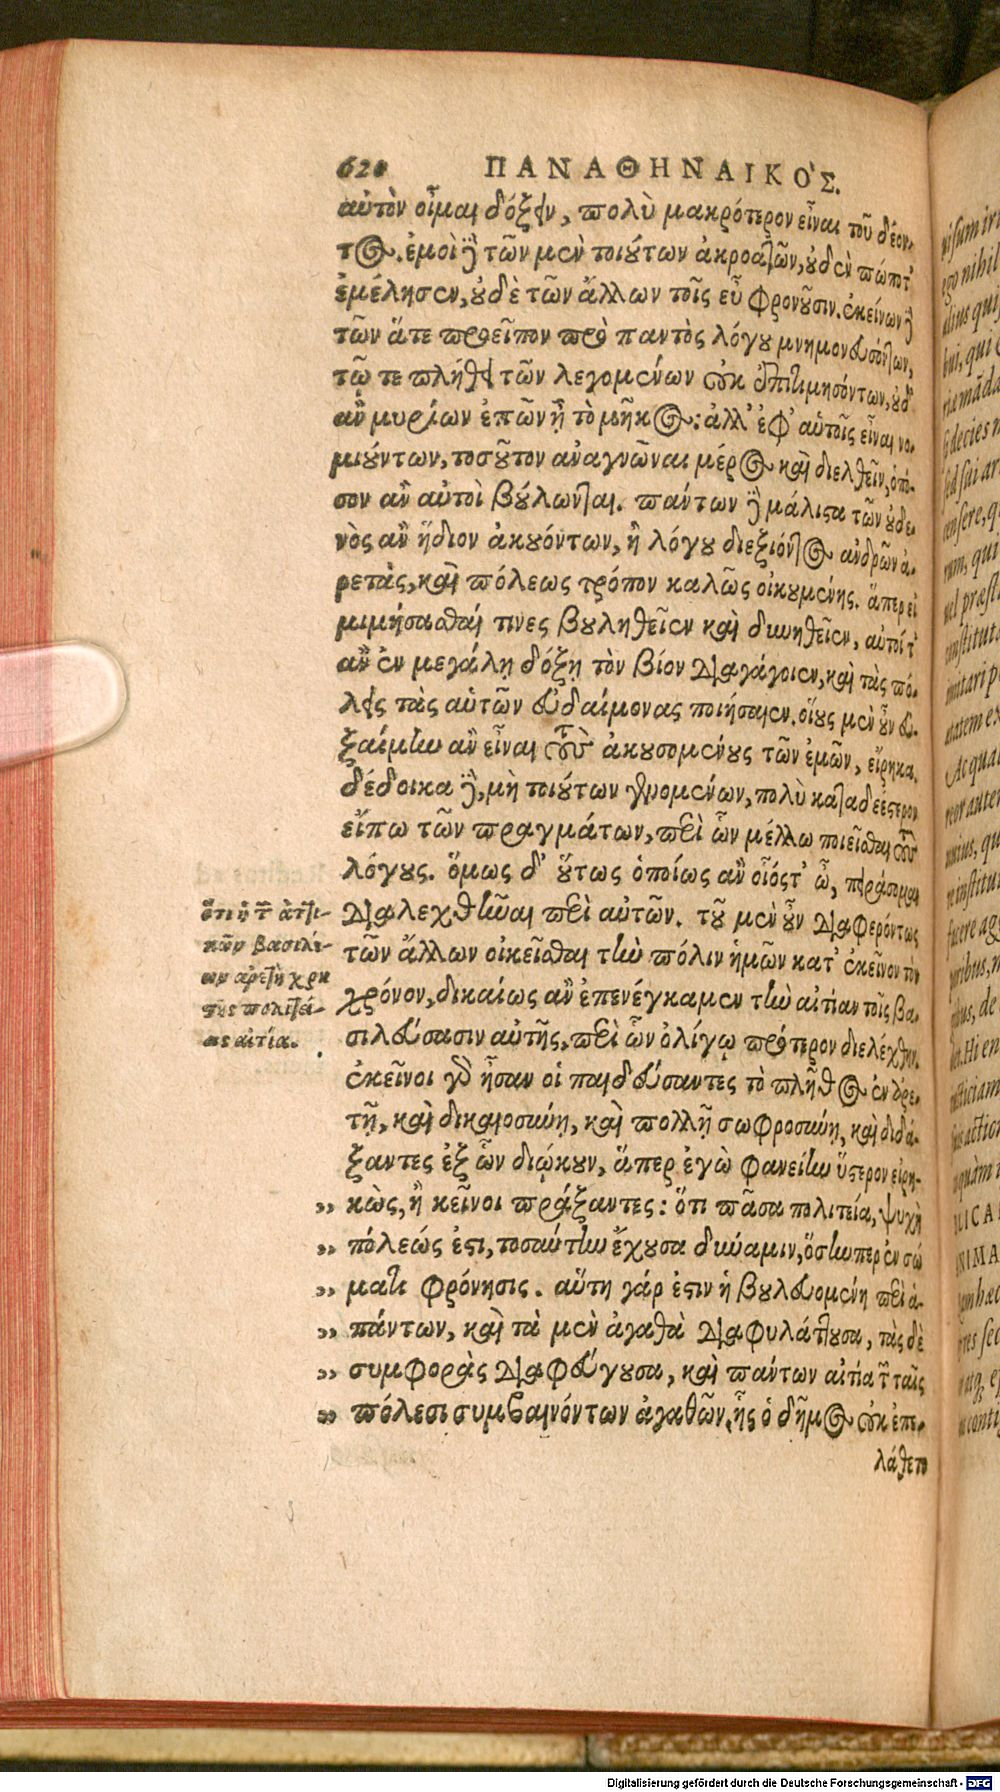 620 ΠΑΝΑΘΗΝΑΙΚΟ'Σ.
αὐτὸν οἶμαι δόξειν, πολὺ μακρότερον εἶναι τοῦ δέον-
τος. ἐμοὶ δὲ τῶν μὲν τοιούτων ἀκροατῶν, οὐδὲν πώποτ'
ἐμέλησεν, οὐδὲ τῶν ἄλλων τοῖς εὖ φρονοῦσιν. ἐκείνων δὲ
τῶν ἅτε προεῖπον πρὸ παντὸς λόγου μνημονευσόντων,
τῷ τε πλήθει τῶν λεγομένων οὐκ ἐπιτιμησόντων, οὐδ'
ἂν μυρίων ἐπῶν ᾖ τὸ μῆκος: ἀλλ' ἐφ' αὑτοῖς εἶναι νο-
μιούντων, τοσοῦτον ἀναγνῶναι μέρος καὶ διελθεῖν, ὁπό-
σον ἂν αὐτοὶ βούλωνται. πάντων δὲ μάλιστα τῶν οὐδε-
νὸς ἂν ἥδιον ἀκουόντων, ἢ λόγου διεξιόντος ἀνδρῶν ἀ-
ρετὰς, καὶ πόλεως τρόπον καλῶς οἰκουμένης. ἅπερ εἰ
μιμήσασθαί τινες βουληθεῖεν καὶ δυνηθεῖεν, αὐτοί τ'
ἂν ἐν μεγάλῃ δόξῃ τὸν βίον διαγάγοιεν, καὶ τὰς πό-
λεις τὰς αὑτῶν εὐδαίμονας ποιήσαιεν. οἵους μὲν οὖν εὐ-
ξαίμην ἂν εἶναι τοὺς ἀκουσομένους τῶν ἐμῶν, εἴρηκα.
δέδοικα δὲ, μὴ τοιούτων γενομένων, πολὺ καταδεέστερον
εἴπω τῶν πραγμάτων, περὶ ὧν μέλλω ποιεῖσθαι τοὺς
λόγους. ὅμως δ' οὕτως ὁποίως ἂν οἷόστ' ὦ, πειράσομαι
διαλεχθῆναι περὶ αὐτῶν. τοῦ μὲν οὖν διαφερόντως
τῶν ἄλλων οἰκεῖσθαι τὴν πόλιν ἡμῶν κατ' ἐκεῖνον τὸν
χρόνον, δικαίως ἂν ἐπενέγκαμεν τὴν αἰτίαν τοῖς βα-
σιλεύσασιν αὐτῆς, περὶ ὧν ὀλίγῳ πρότερον διελέχθην.
ἐκεῖνοι γὰρ ἦσαν οἱ παιδεύσαντες τὸ πλῆθος ἐν ἀρε-
τῇ, καὶ δικαιοσύνῃ, καὶ πολλῇ σωφροσύνῃ, καὶ διδά-
ξαντες ἐξ ὧν διῴκουν, ἅπερ ἐγὼ φανείην ὕστερον εἰρη-
,, κὼς, ἢ κεῖνοι πράξαντες: ὅτι πᾶσα πολιτεία, ψυχὴ
,, πόλεώς ἐστι, τοσαύτην ἔχουσα δύναμιν, ὅσην περ ἐν σώ
,, ματι φρόνησις. αὕτη γάρ ἐστιν ἡ βουλευομένη περὶ ἁ-
,, πάντων, καὶ τὰ μὲν ἀγαθὰ διαφυλάττουσα, τὰς δὲ
,, συμφορὰς διαφεύγουσα, καὶ πάντων αἰτία τῶν ταῖς
,, πόλεσι συμβαινόντων ἀγαθῶν, ἧς ὁ δῆμος οὐκ ἐπε-
λάθετο
ὅτι ἡ τῶν ἀττι-
κῶν βασιλέ-
ων ἀρετὴ χρη
τῆς πολιτεί-
ας αἰτία.
Digitalisierung gefördert durch die Deutsche Forschungsgemeinschaft - DFG